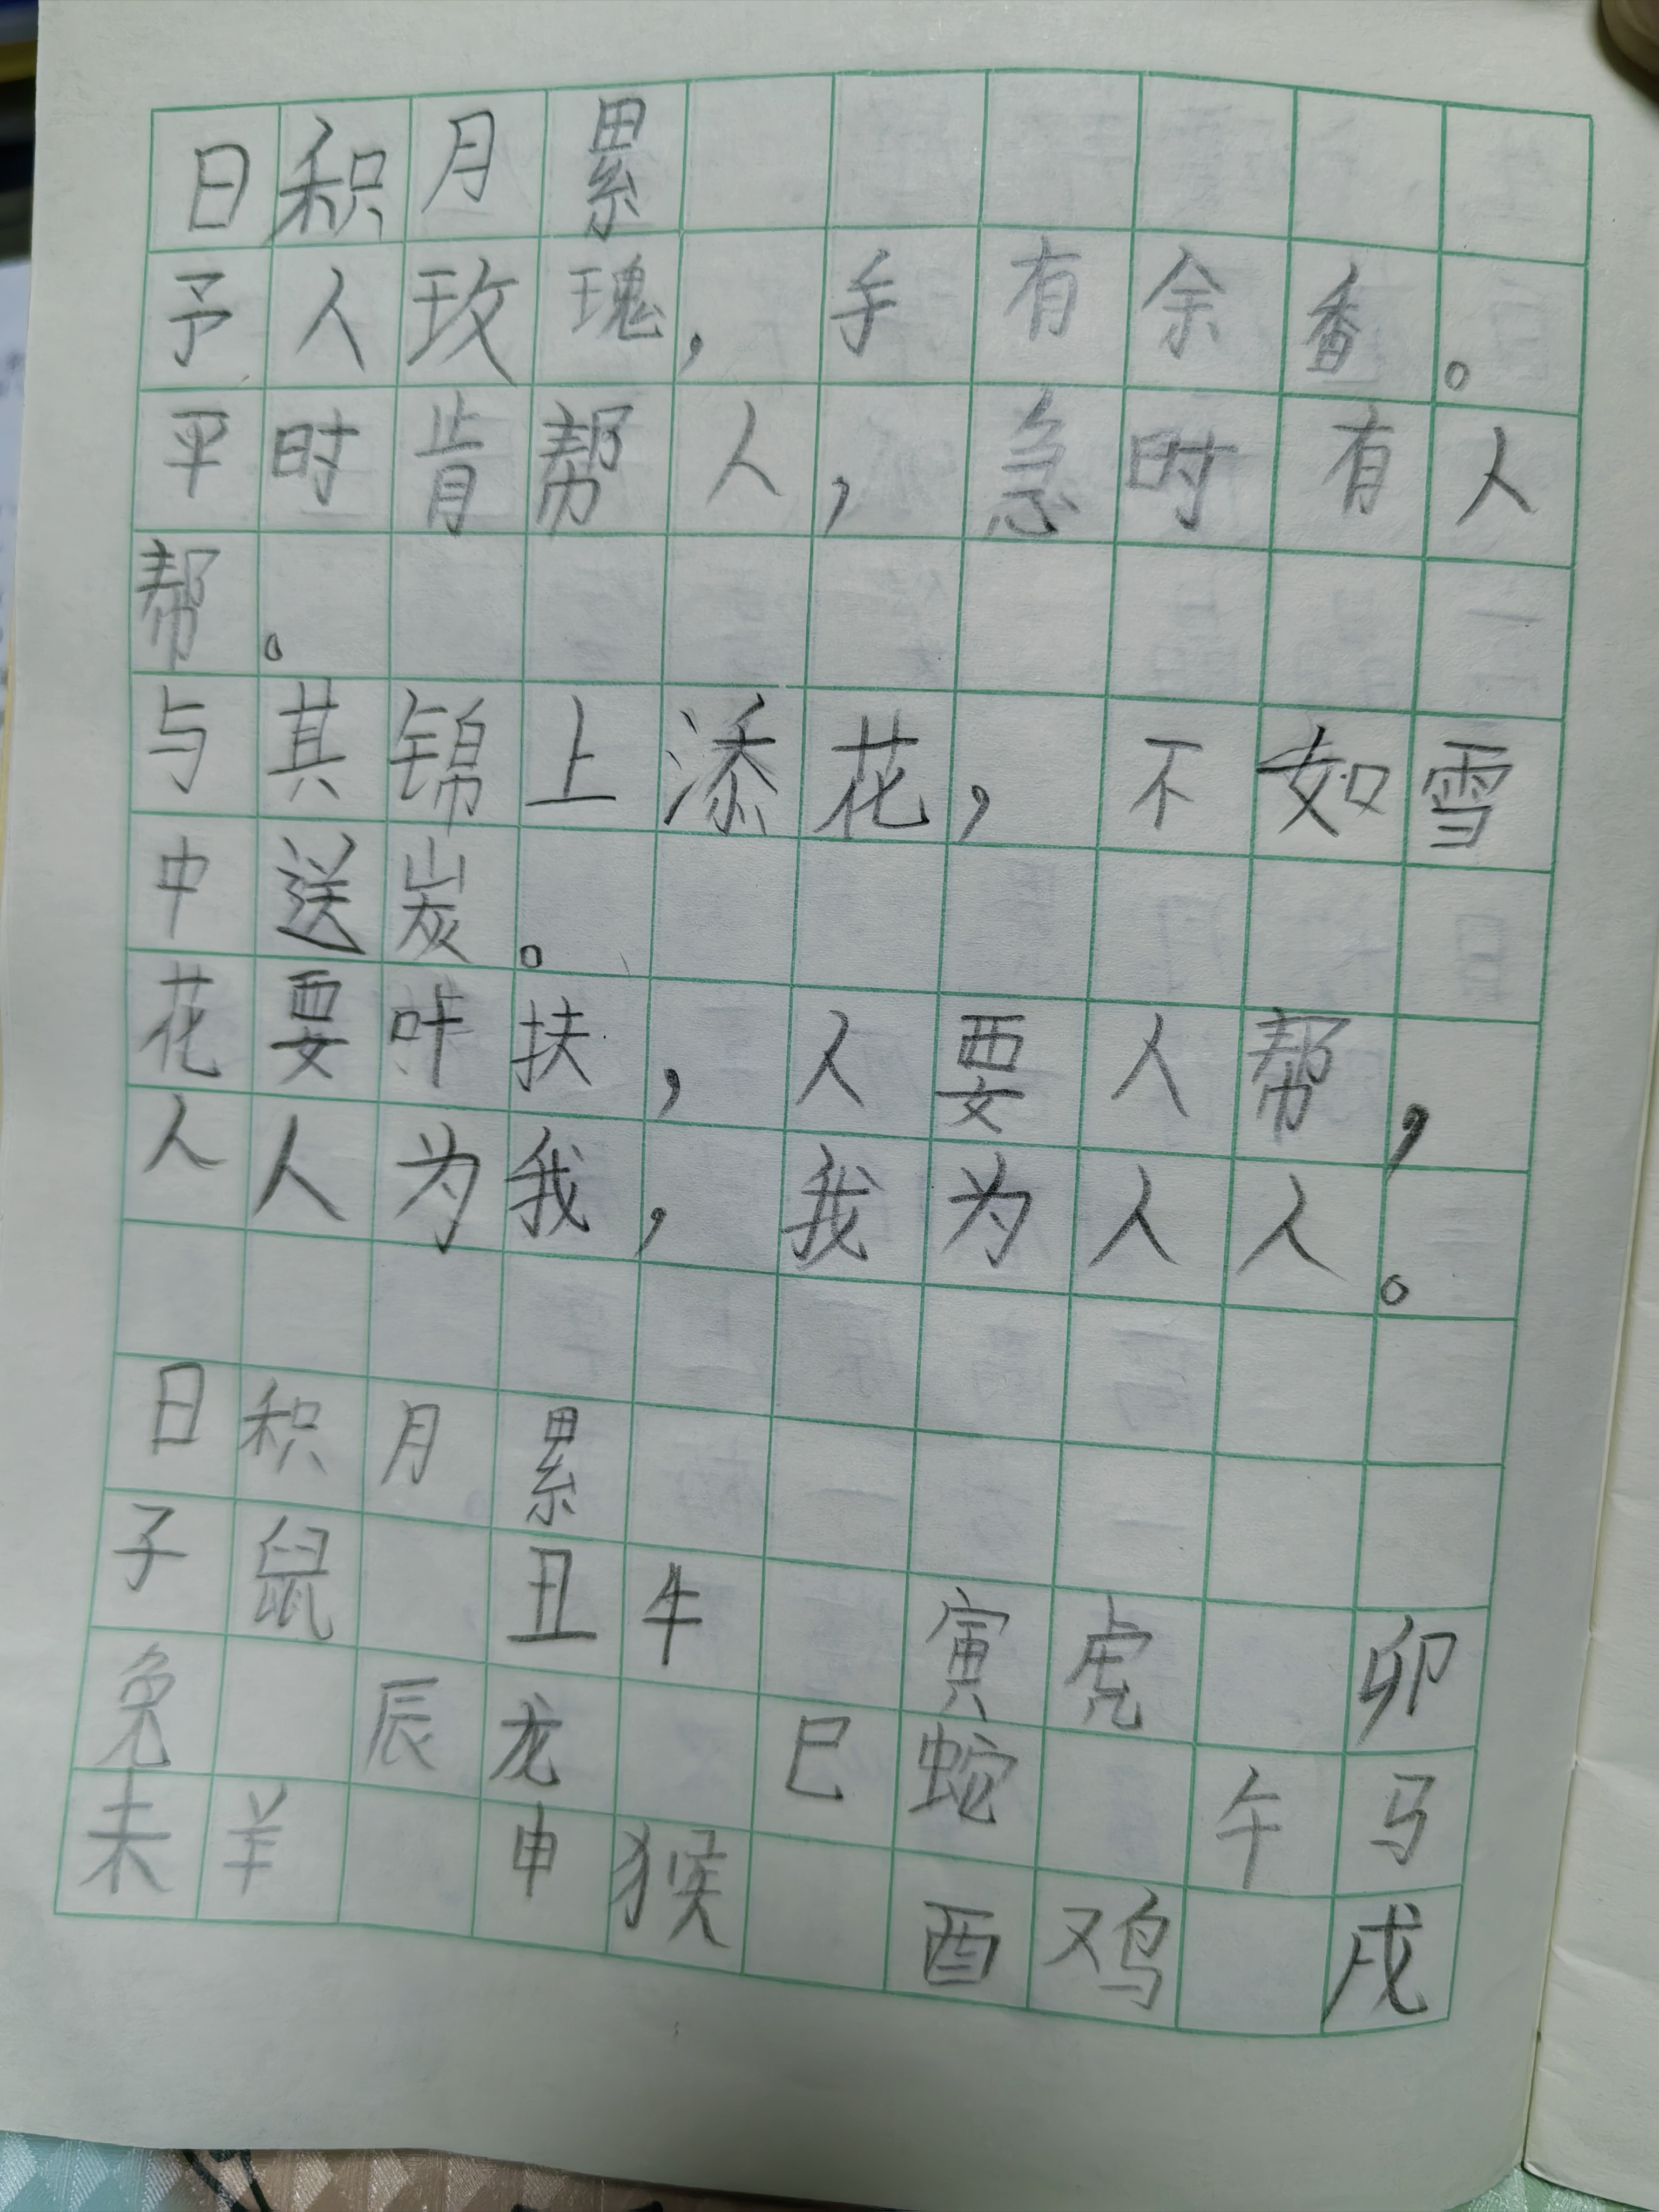 日积月累
予人玫瑰，手有余香。
平时肯帮人，急时有人
帮。
与其锦上添花，不如雪
中送炭。
花要咔扶，人要人帮，
人人为我，我为人人。
日积月累
子鼠 丑牛 寅虎 卯
兔 辰龙 巳蛇 午马
未羊 申猴 酉鸡 戌